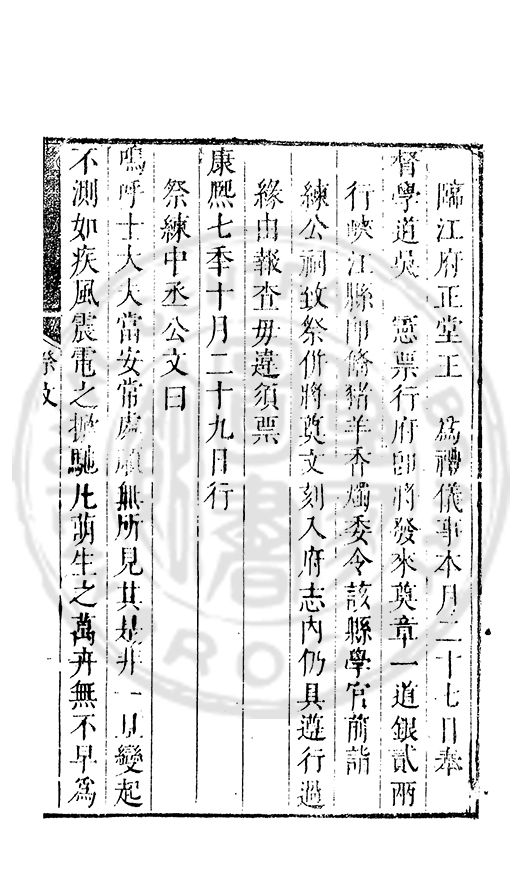 臨江府正堂王　為禮儀事本月二十七日奉
督學道吳　憲票行府即將發來奠章一道銀貳兩
行峽江縣即備猪羊香燭委令該縣學官前詣
練公祠致祭併將奠文刻入府志內仍具遵行過
緣由報查毋違須票
康熙七季十月二十九日行
祭練中丞公文曰
嗚呼士大夫當安常處順無所見其是非一旦變起
不測如疾風震電之掀馳凡萌生之萬卉無不早為
祭文